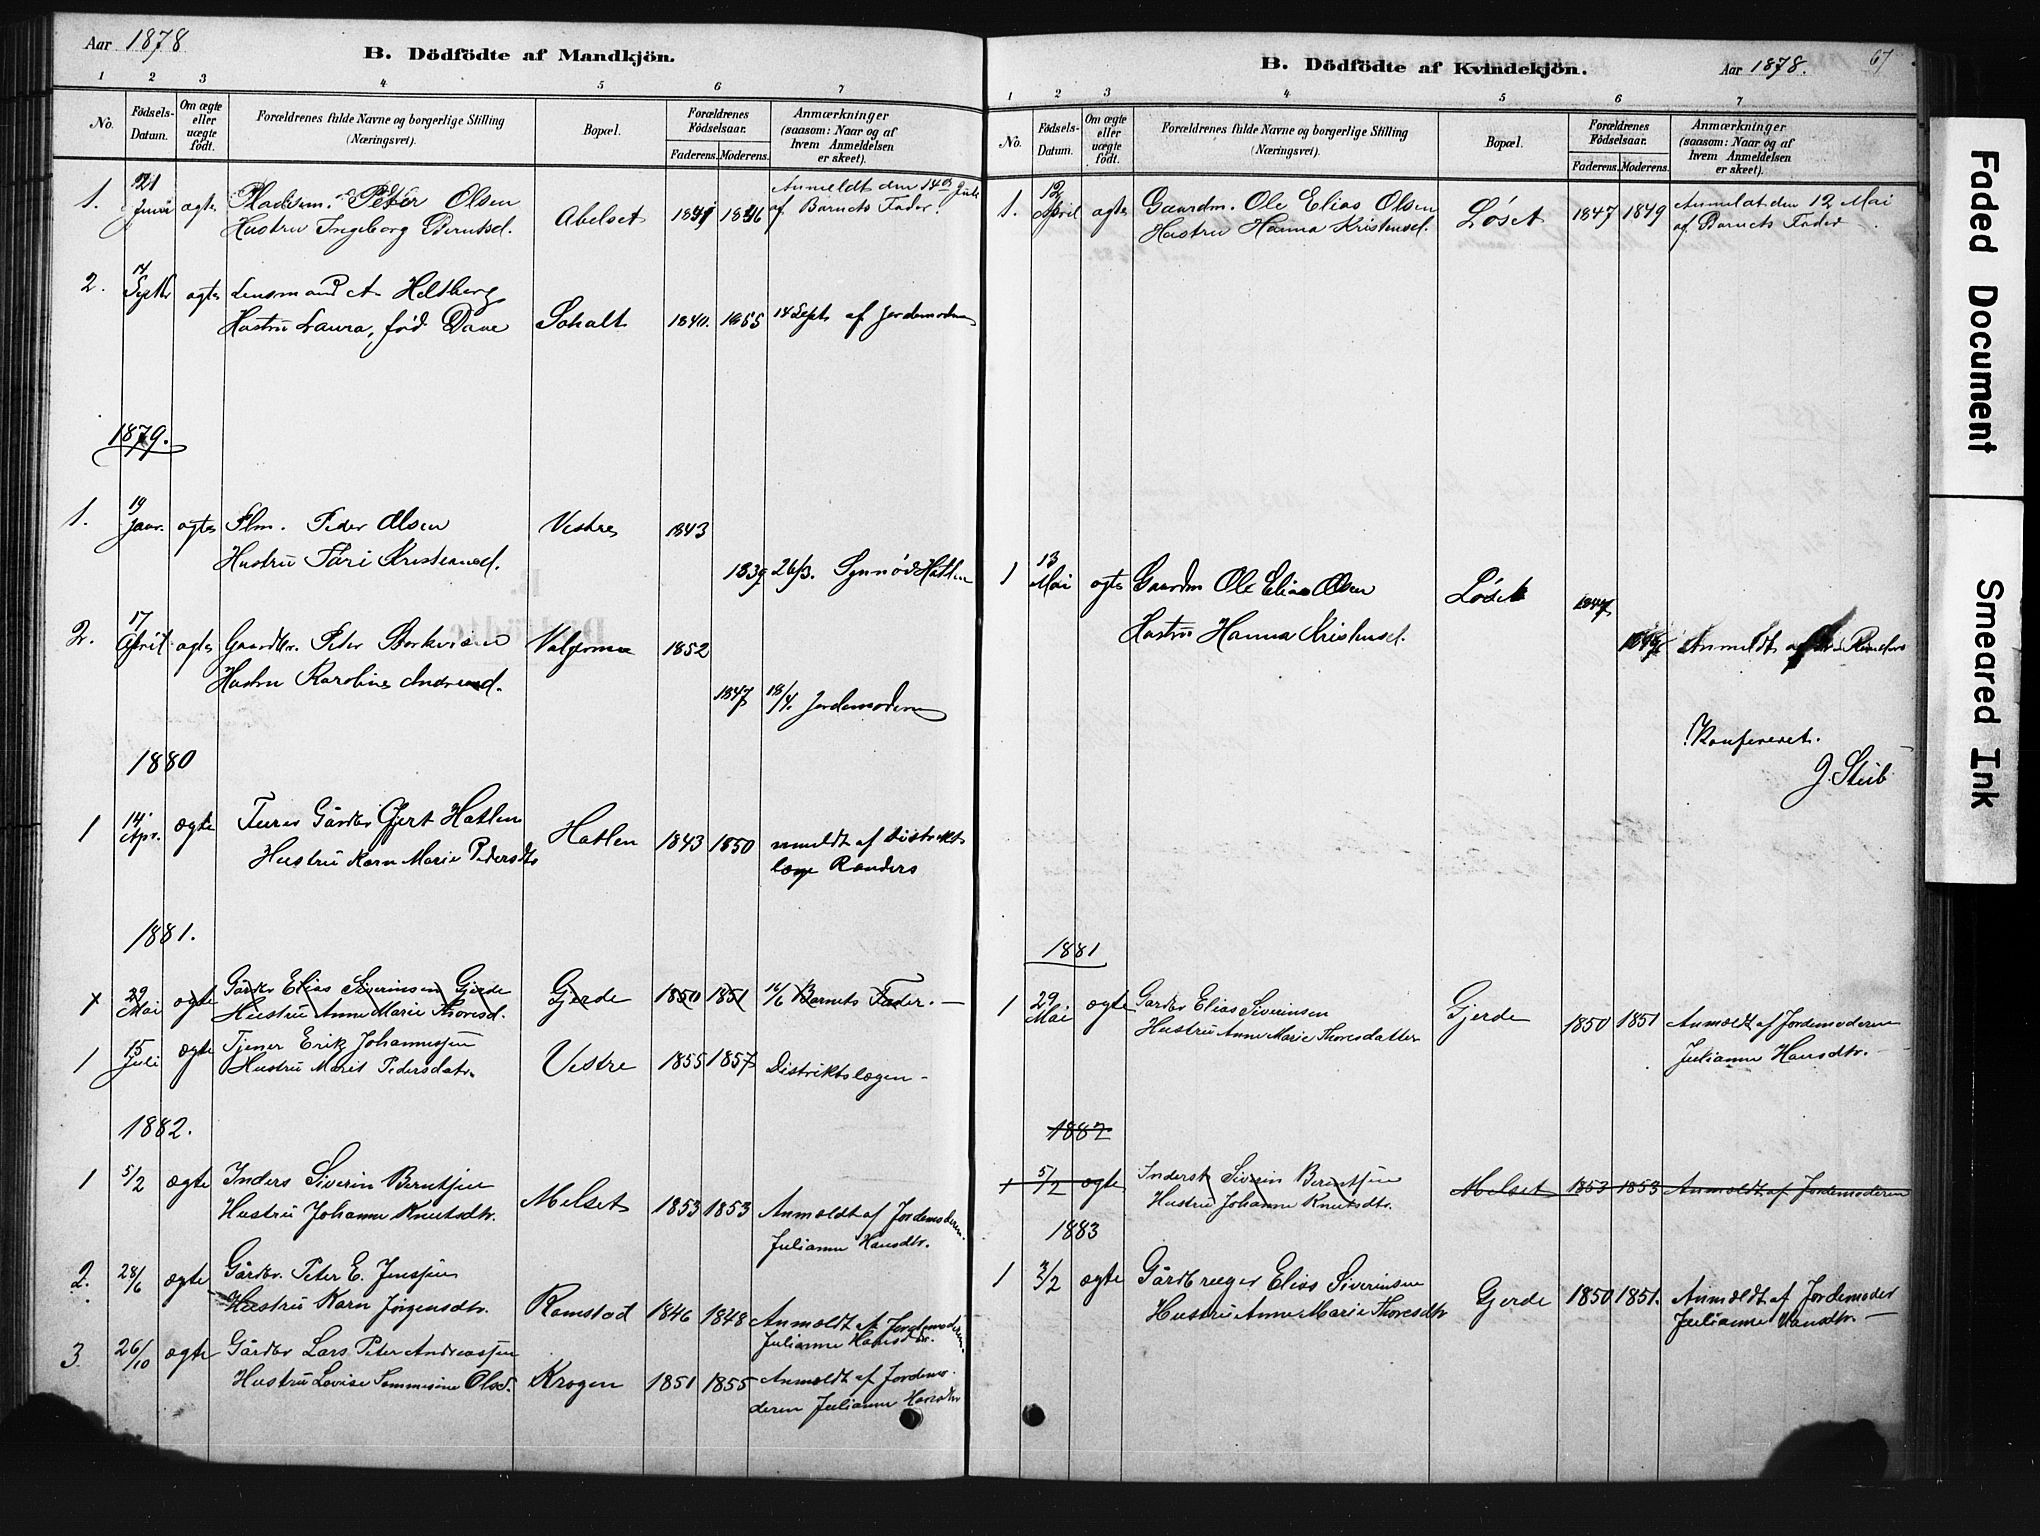 Aar 1878
B. Dödfödte af Mandkjön.
1 2 3 4 5 6 7
No.
Födsels-Datum.
Om ægte eller uægte födt.
Forældrenes fulde Navne og borgerlige Stilling
(Næringsvei).
Bopæl.
Forældrenes Födselsaar.
Faderens. Moderens.
Anmærkninger
(saasom: Naar og af
hvem Anmeldelsen
er skeet).
1. 21 ægte Pladsm. Peter Olsen
Hustru Ingeborg Berntsd. Abelset 1846
Anmeldt den 14de
af Barnets Fader.
2. 14 Septbr ægte Lensmand A Heltberg
Hustru Laura, fød Daae 1840. 1855 14 Sept af Jordemoderen
1879.
1. 19 Janr. ægte Plm. Peder Olsen Vestre 1843
Hustru Kristiansd. 1839 26/3. Synnøv Hatlen
2. 17 April ægte Gaardbr. Peter 1852
Hustru Karoline Andreasd. 1847 18/4. Jordemoderen
1880
1 14. Apr. ægte Gårdbr Gjert Hatlen
Hustru Karn Marie Pedersdtr Hatlen 1843 1850 anmeldt af Distrikts
læge Randers
1881.
1 29 Mai ægte Gårdbr Elias Siverinsen Gjerde
Hustru Anne Marie Thoresd. Gjerde 1850 1851 16/6 Barnets Fader. —
1 15 Juli ægte Tjener Erik Johannessen
Hustru Marit Pedersdatr. Vestre 1855 1857 Distriktslægen –
1882.
1 5/2 ægte Inders Siverin Berntsen
Hustru Johanne Knutsdtr. Melset 1853 1853 Anmeldt af Jordemoderen
Julianne Hansdtr.
2. 28/6 ægte Gårdbr. Peter E. Jenssen
Hustru Karn Jørgensdtr. Ramstad 1846 1848 Anmeldt af Jordemoderen
Julianne Hansdtr.
3 26/10 ægte Gårdbr Lars Peter Andreassen
Hustru Lovise Olsd. Krogen 1851 1855 Anmeldt af Jordemo-
deren Julianne Hansdtr
B. Dödfödte af Kvindekjön.
Aar 1878.
67
1 2 3 4 5 6 7
No.
Födsels-Datum.
Om ægte eller uægte födt.
Forældrenes fulde Navne og borgerlige Stilling
(Næringsvei).
Bopæl.
Forældrenes Födselsaar.
Faderens. Moderens.
Anmærkninger
(saasom: Naar og af
hvem Anmeldelsen
er skeet).
1. 12 April ægte Gaardm. Ole Elias Olsen
Hustru Hanna Kristensd. Løset 1847 1849 Anmeldt den 12 Mai
af Barnets Fader
1 13 Mai ægte Gaardm Ole Elias Olsen Løset 1847
Hustru Hanna Kristensd. Anmeldt af Randers
Konfereret.
J. Steib
1881
1 29 Mai ægte Gardbr Elias Siverinsen
Hustru Anne Marie Thoresdatter Gjerde 1850 1851 Anmeldt af Jordemoderen
Julianne Hansdtr. –
1882
1 5/2 ægte Inderst Siverin Berntsen
Hustru Johanne Knutsdtr. Melset 1853 1853 Anmeldt af Jordemoderen
1883
1 ægte Gårdbruger Elias Siverinsen
Hustru Anne Marie Thoresdtr Gjerde 1850 1851. Anmeldt af Jordemoder
Julianne Hansdtr. —
Faded Document
Smeared Ink